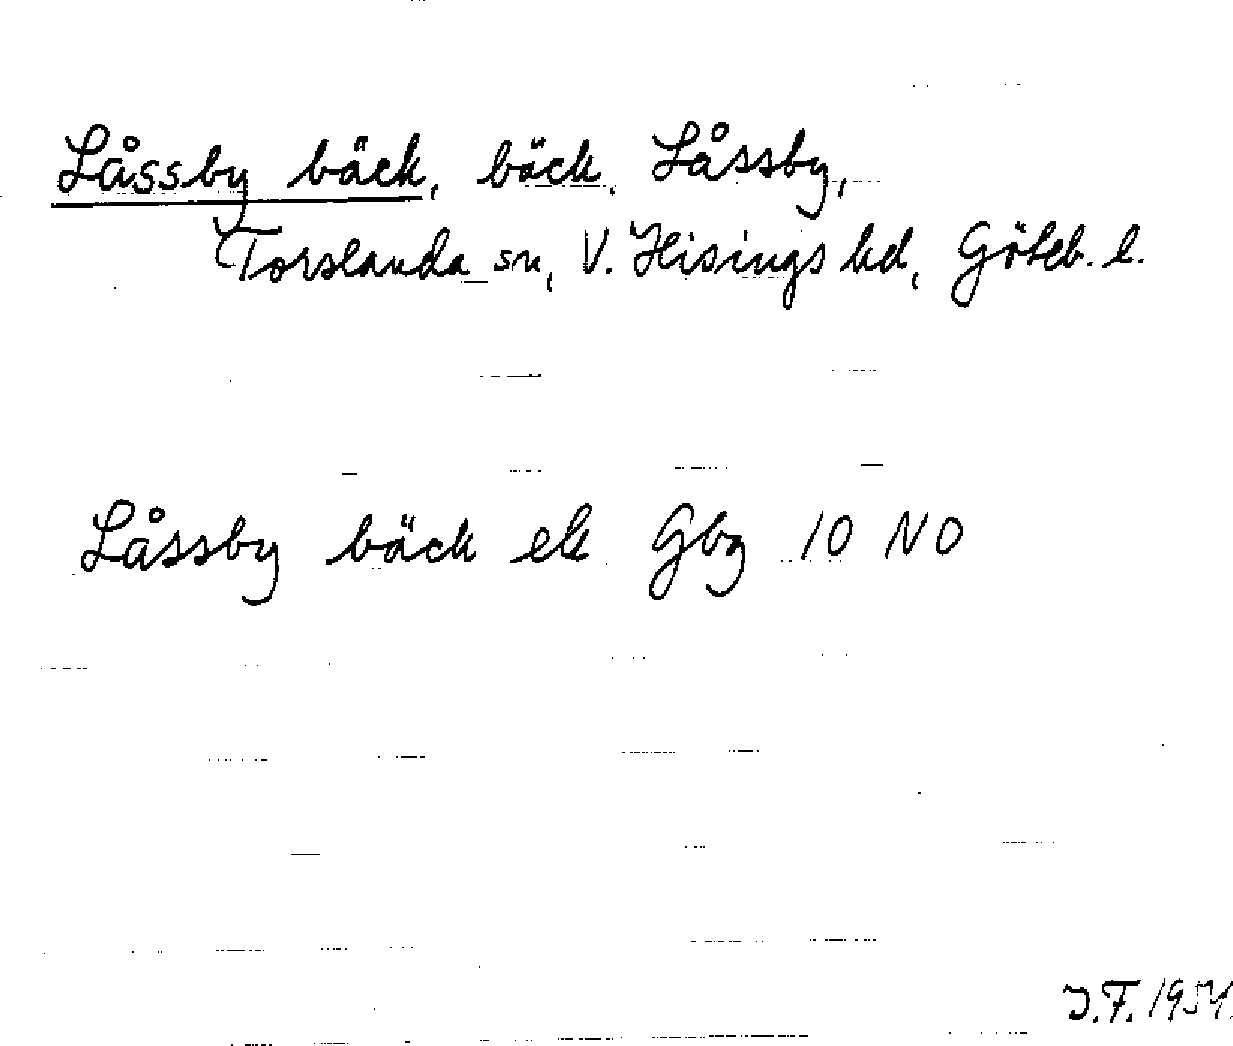 Låssby bäck, bäck, Låssby,
Torslanda sn, V. Hisings hd, Göteb. l.
Låssby bäck ek Gbg 10 NO
J.F. 1954.